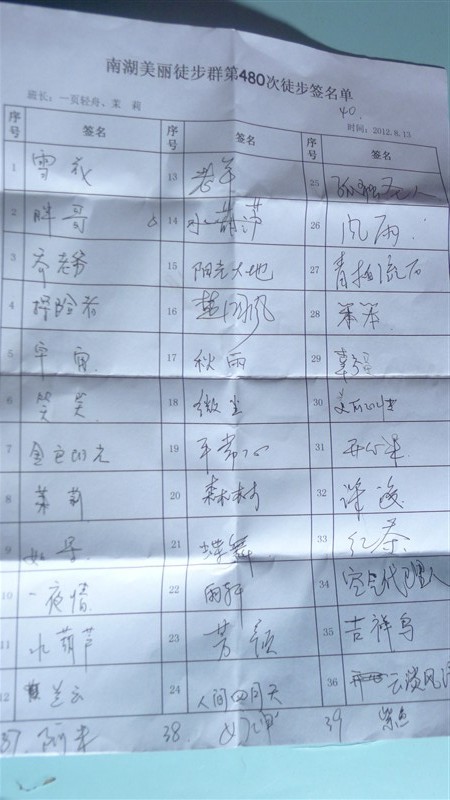 南湖美丽徒步群第480次徒步签名单
40.
班长：一页轻舟、茉 莉 时间：2012.8.13
序号 签名 序号 签名 序号 签名
1 雪花 13 老年 25 孤独
2 胖哥 14 26 风雨
3 乔老爷 15 阳光大地 27 青松
4 探险者 16 楚国风 28 笨笨
5 宇宙 17 秋雨 29
6 笑笑 18 微尘 30
7 金色 19 平常心 31 开心果
8 茉莉 20 森林 32
9 21 蝶舞 33 红茶
10 一夜情 22 雨轩 34 空气代理人
11 水葫芦 23 芳 35 吉祥鸟
12 兰云 24 人间四月天 36 云淡风
37 阿 38. 39 紫色